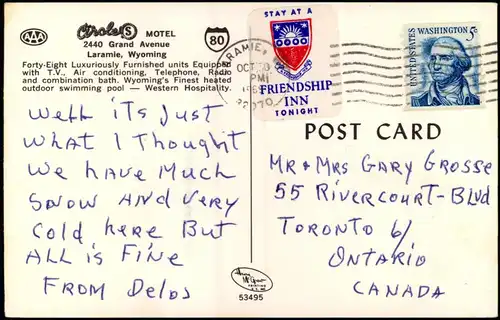 AAA
Circle S MOTEL
2440 Grand Avenue
Laramie, Wyoming
80
Forty-Eight Luxuriously Furnished units Equipped
with T.V., Air conditioning, Telephone, Radio
and combination bath. Wyoming's Finest heated
outdoor swimming pool — Western Hospitality.
Well its Just
What I Thought
We have Much
Snow And very
Cold here But
All is Fine
From Delos
STAY AT A
FRIENDSHIP
INN
TONIGHT
LARAMIE,
OCT
PM
UNITED STATES
WASHINGTON 5c
POST CARD
Mr & Mrs Gary Grosse
55 Rivercourt-Blvd
Toronto 6/
Ontario
Canada
53495